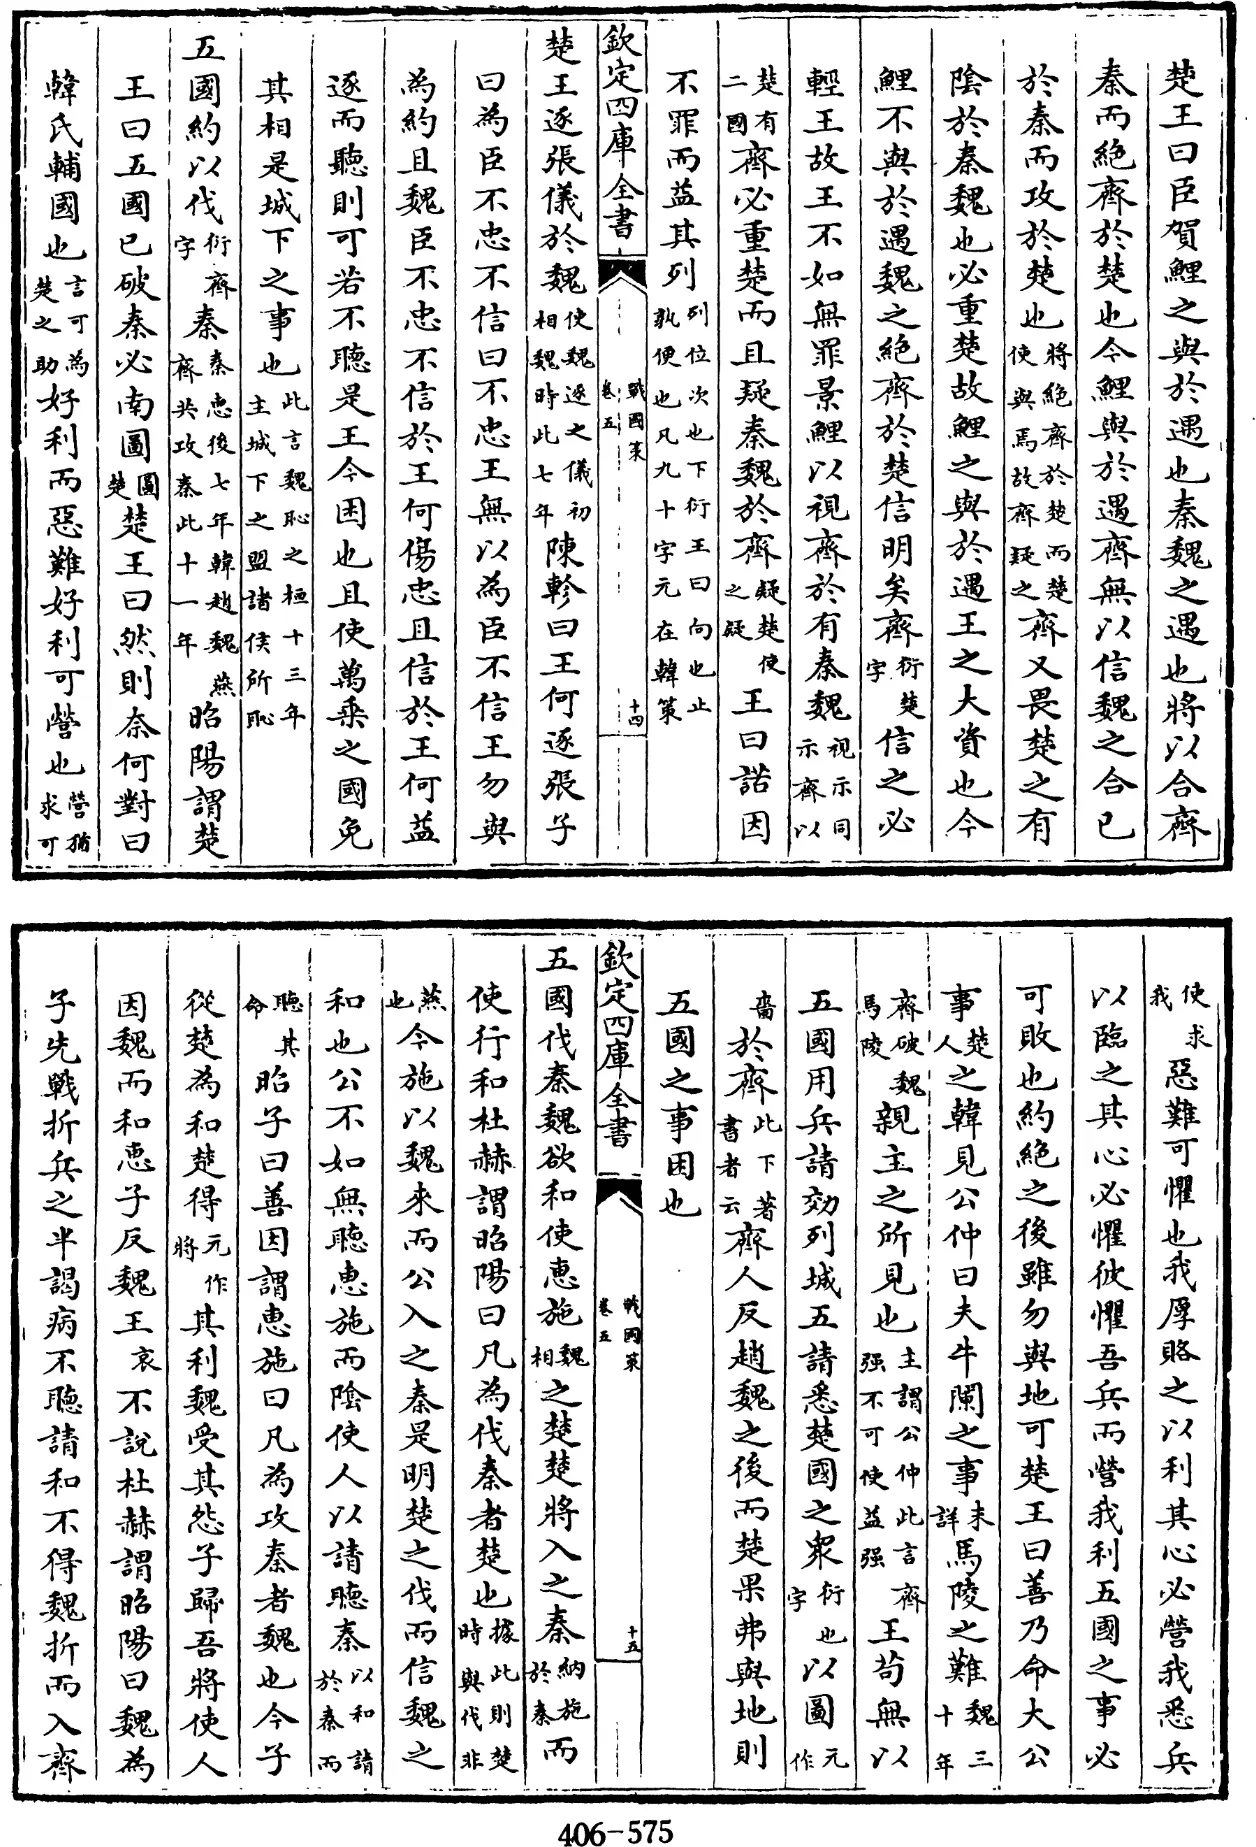 楚王曰臣賀鯉之與於遇也秦魏之遇也將以合齊
秦而絶齊於楚也今鯉與於遇齊無以信魏之合已
於秦而攻於楚也將絶齊於楚而楚使與焉故齊疑之齊又畏楚之有
陰於秦魏也必重楚故鯉之與於遇王之大資也今
鯉不與於遇魏之絶齊於楚信明矣齊衍楚字信之必
輕王故王不如無罪景鯉以視齊於有秦魏視示同示齊以
楚有二國齊必重楚而且疑秦魏於齊疑楚使之疑王曰諾因
不罪而益其列列位次也下衍王曰向也止孰便也凡九十字元在韓策
欽定四庫全書
戰國策
卷五
十四
楚王逐張儀於魏使魏逐之儀初相魏時此七年陳軫曰王何逐張子
曰為臣不忠不信曰不忠王無以為臣不信王勿與
為約且魏臣不忠不信於王何傷忠且信於王何益
逐而聽則可若不聽是王令困也且使萬乗之國免
其相是城下之事也此言魏恥之桓十三年主城下之盟諸侯所恥
五國約以伐衍齊字秦秦惠後七年韓趙魏燕齊共攻秦此十一年昭陽謂楚
王曰五國已破秦必南圖圖楚楚王曰然則奈何對曰
韓氏輔國也言可為楚之助好利而惡難好利可營也營猶求可
使求我惡難可懼也我厚賂之以利其心必營我悉兵
以臨之其心必懼彼懼吾兵而營我利五國之事必
可敗也約絶之後雖勿與地可楚王曰善乃命大公
事楚人之韓見公仲曰夫牛闌之事未詳馬陵之難魏三十年
齊破魏馬陵親主之所見也主謂公仲此言齊强不可使益强王苟無以
五國用兵請効列城五請悉楚國之衆衍也字以圖元作
啚於齊此下著書者云齊人反趙魏之後而楚果弗與地則
五國之事困也
欽定四庫全書
戰國策
卷五
十五
五國伐秦魏欲和使惠施魏相之楚楚將入之秦納施於秦而
使行和杜赫謂昭陽曰凡為伐秦者楚也據此則楚時與伐非
燕也今施以魏來而公入之秦是明楚之伐而信魏之
和也公不如無聽惠施而陰使人以請聽秦以和請於秦而
聽其命昭子曰善因謂惠施曰凡為攻秦者魏也今子
從楚為和楚得元作將其利魏受其怨子歸吾將使人
因魏而和惠子反魏王哀不說杜赫謂昭陽曰魏為
子先戰折兵之半謁病不聽請和不得魏折而入齊
406-575